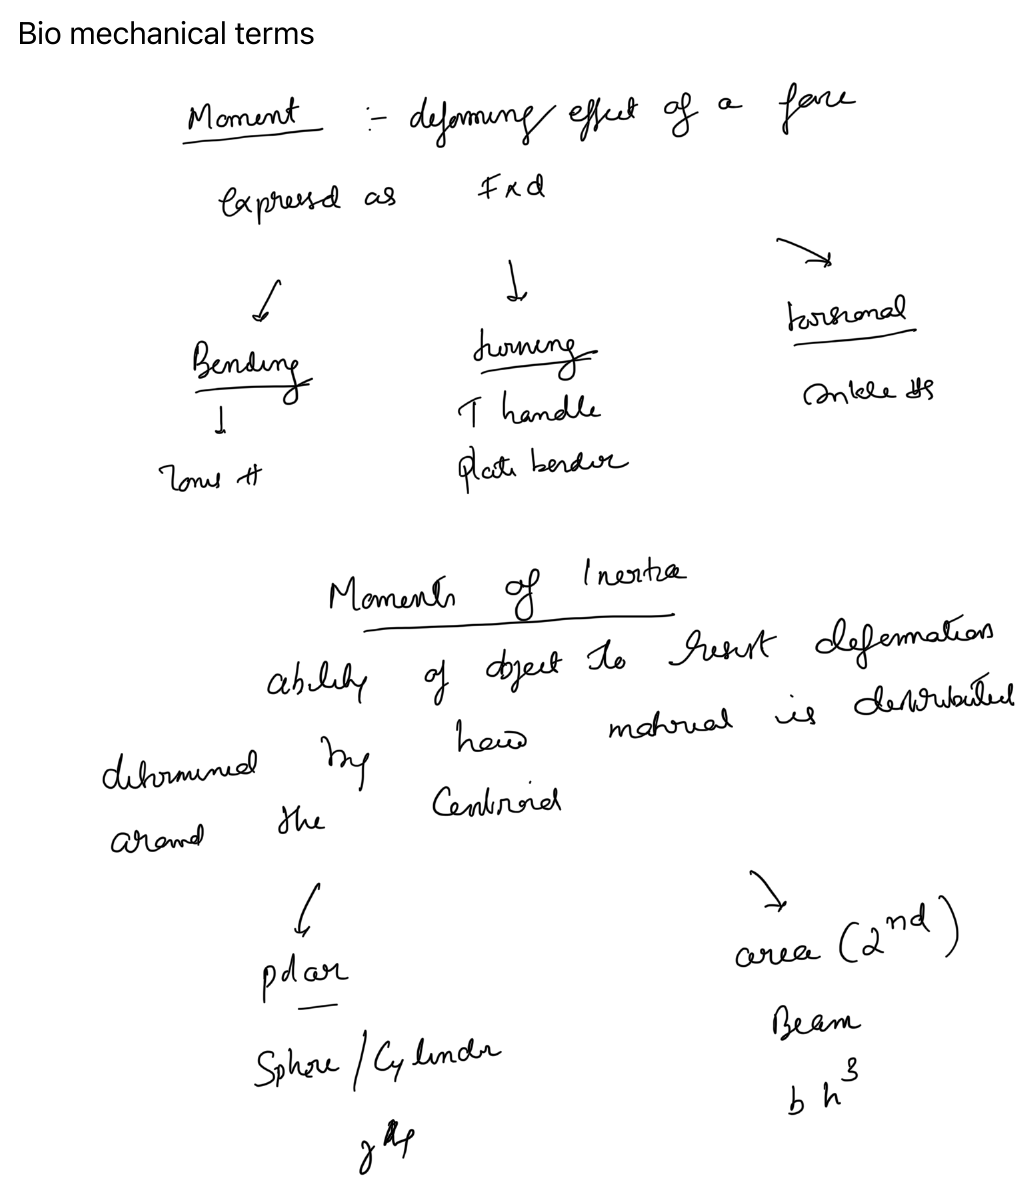 Bio mechanical terms
Moment :- deforming effect of a force
Expressed as F x d
Bending turning torsional
T handle Ankle #s
#
Plate bender
Moments of Inertia
ability of object to resist deformation
determined by how material is distributed
around the Centroid
polar area (2nd)
Sphere / Cylinder Beam
b h³